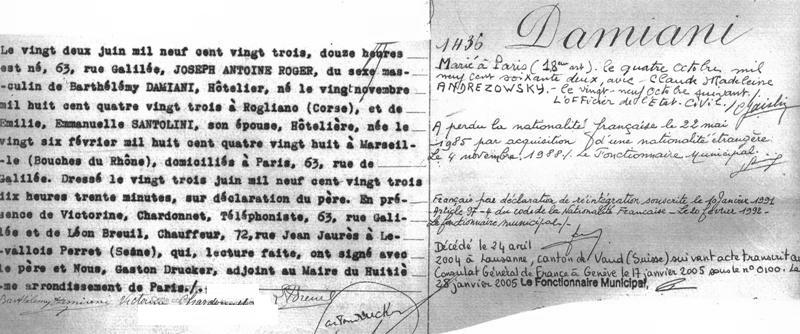 Le vingt deux juin mil neuf cent vingt trois, douze heures
est né, 63, rue Galilée, JOSEPH ANTOINE ROGER, du sexe mas-
culin de Barthélémy DAMIANI, Hôtelier, né le vingt novembre
mil huit cent quatre vingt trois à Rogliano (Corse), et de
Emilie, Emmanuelle SANTOLINI, son épouse, Hôtelière, née le
vingt six février mil huit cent quatre vingt huit à Marseil-
-le (Bouches du Rhône), domiciliés à Paris, 63, rue de
Galilée. Dressé le vingt trois juin mil neuf cent vingt trois
dix heures trente minutes, sur déclaration du père. En pré-
sence de Victorine, Chardonnet, Téléphoniste, 63, rue Gali-
lée et de Léon Breuil, Chauffeur, 72, rue Jean Jaurès à Le-
vallois Perret (Seine), qui, lecture faite, ont signé avec
le père et Nous, Gaston Drucker, adjoint au Maire du Huitiè
-me arrondissement de Paris./.
Barthélémy Damiani Victorine Chardonnet L Breuil
Gaston Drucker
Damiani
1436
Marié à Paris (18ème arrt). le quatre octobre mil
neuf cent soixante deux, avec - Claude Madeleine
ANDREZOWSKY.- le vingt-neuf octobre suivant.
L'Officier de l'Etat-Civil./
A perdu la nationalité française le 22 mai
1985 par acquisition d'une nationalité étrangère
Le 4 novembre 1988./. Le Fonctionnaire Municipal.
Français par déclaration de réintégration souscrite le 10 janvier 1991
Article 97-4 du code de la Nationalité Francaise - Le 20 février 1992-
Le fonctionnaire municipal./-
Décédé le 24 avril
2004 à Lausanne, canton de Vaud (Suisse) suivant acte transcrit au
Consulat Général de France à Genève le 17 janvier 2005 sous le n° 0100. Le
28 janvier 2005 Le Fonctionnaire Municipal,